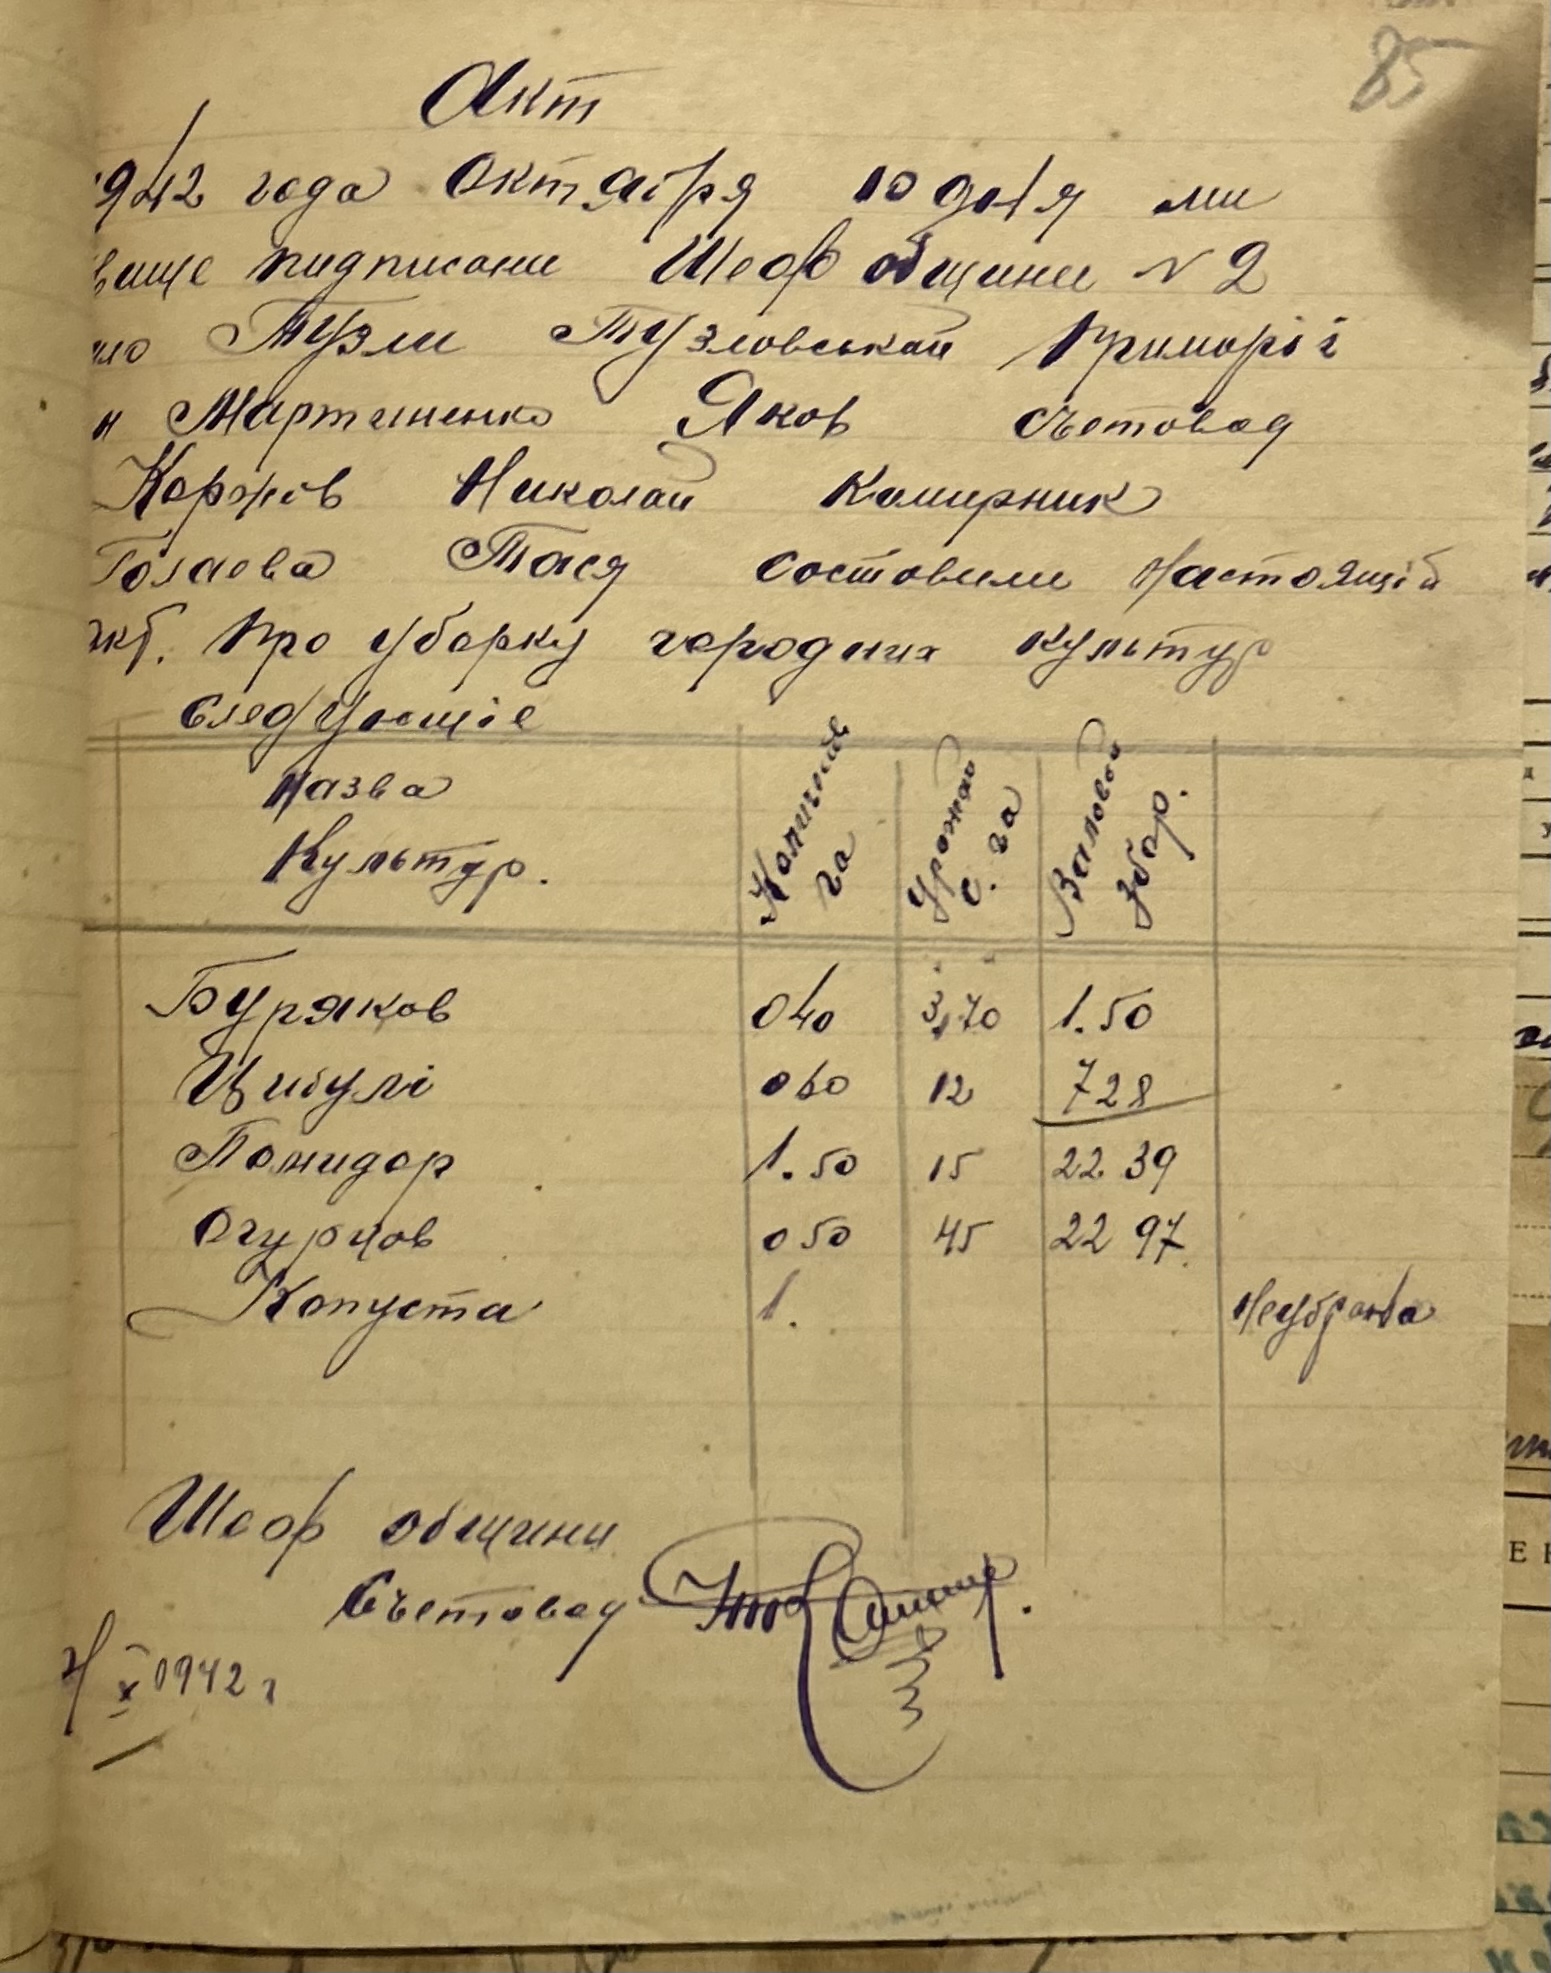 85
Акт
1942 года Октября 10 дня ми
више пидписани Шеф общини N 2
Тузли Тузловськай Примориї
Мартиненко Яков счетовод
Коржов Николай Камирник
Голаева Тася состовили настоящий
акт. Про уборку городних культур
следующие
Назва Культур. Количество га Урожай с. га Валовой збор.
Буряков 0 40 3,70 1.50
Цибулі 0 60 12 7 28
Помидор 1.50 15 22 39
Огурцов 0 50 45 22 97.
Копуста 1. Неубрана
Шеф общини
Счетовод
X 1942 г